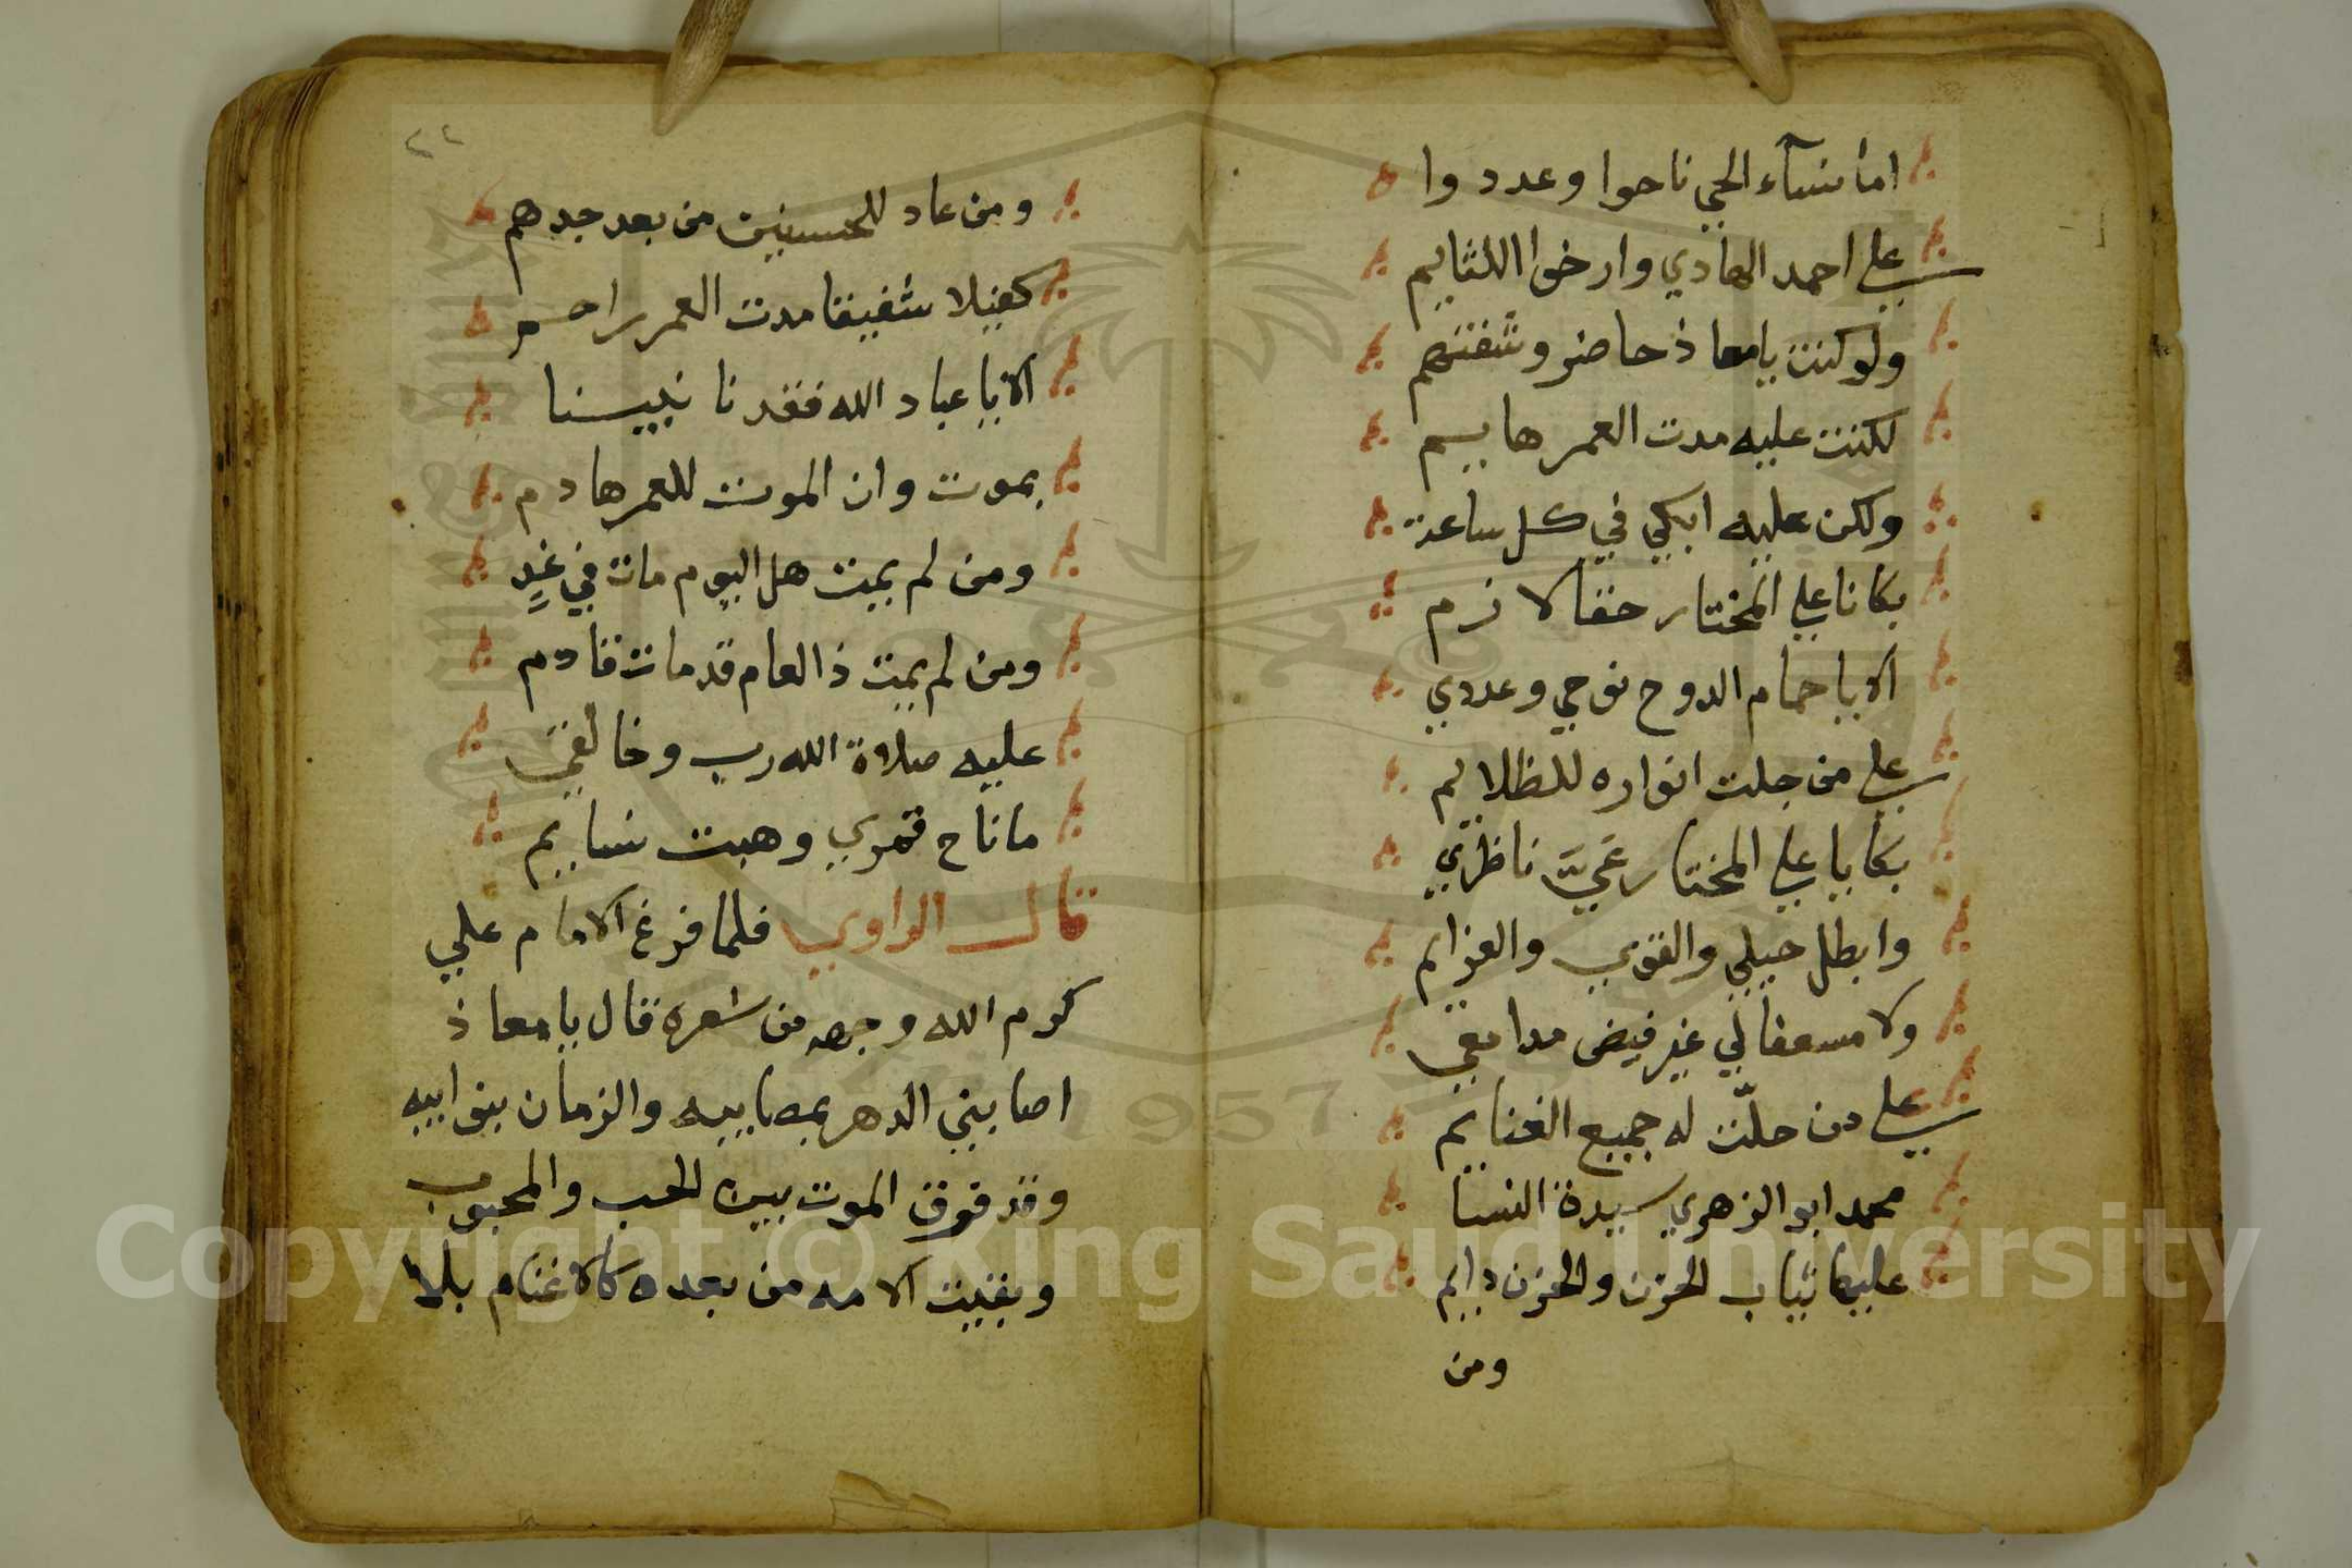 اما نسآء الحي ناحوا وعددوا
علي احمد الهادي وارخوا اللثايم
ولو كنت يا معاذ حاضر وشفتهم
لكنت عليه مدت العمر هايم
ولكن عليه ابكي في كل ساعة
بكانا علي المختار حقا لازم
الا يا حمام الدوح نوحي وعددي
علي من جلت انواره للظلايم
بكايا علي المختار عمي ناظري
وابطل حيلي والقوي والعزايم
ولا مسعفا لي غير فيض مدامعي
علي من حلّت له جميع الغنايم
محمد ابو الزهري سيدة النسا
عليها ثياب الحزن والحزن دايم
ومن
٢٢
ومن عاد للحسنين من بعد جدهم
كفيلا شفيقا مدت العمر راحم
الا يا عباد الله فقدنا نبينا
بموت وان الموت للعمر هادم
ومن لم يمت هل اليوم مات في غدٍ
ومن لم يمت ذا العام قد مات قادم
عليه صلاة الله رب وخالقي
ما ناح قمري وهبت نسايم
قال الراوي فلما فرغ الامام علي
كرم الله وجهه من شعره قال يا معاذ
اصابني الدهر بمصايبه والزمان بنوايبه
وقد فرق الموت بين الحب والمحبوب
وبقيت الامه من بعده كالاغنام بلا
Copyright © King Saud University
1957